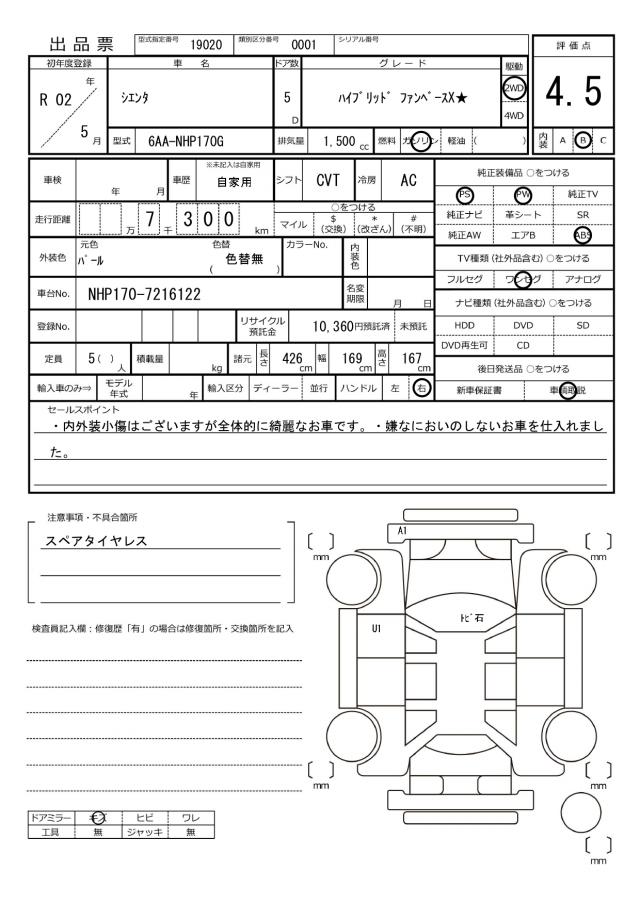 出品票 型式指定番号 19020 類別区分番号 0001 シリアル番号
評価点
4.5
内装 A B C
初年度登録 車名 ドア数 グレード 駆動
R 02 年 / 5 月 シエンタ 5 D ハイブリッド ファンベースX★ 2WD
4WD
型式 6AA-NHP170G 排気量 1,500 cc 燃料 ガソリン 軽油 ( )
車検 年 月 車歴 ※未記入は自家用 自家用 シフト CVT 冷房 AC
純正装備品 ○をつける
PS PW 純正TV
純正ナビ 革シート SR
純正AW エアB ABS
走行距離 万 7 千 300 km ○をつける
マイル $(交換) *(改ざん) #(不明)
外装色 元色 パール 色替 ( 色替無 ) カラーNo. 内装色
TV種類 (社外品含む) ○をつける
フルセグ ワンセグ アナログ
車台No. NHP170-7216122 名変期限 月 日
ナビ種類 (社外品含む) ○をつける
HDD DVD SD
DVD再生可 CD
登録No. リサイクル預託金 10,360円預託済 未預託
定員 5( )人 積載量 kg 諸元 長さ 426cm 幅 169cm 高さ 167cm
後日発送品 ○をつける
新車保証書 車輌取説
輸入車のみ⇒ モデル年式 年 輸入区分 ディーラー 並行 ハンドル 左 右
セールスポイント
・内外装小傷はございますが全体的に綺麗なお車です。・嫌なにおいのしないお車を仕入れまし
た。
注意事項・不具合箇所
スペアタイヤレス
検査員記入欄：修復歴「有」の場合は修復箇所・交換箇所を記入
A1
U1
トビ石
mm
mm
mm
mm
mm
ドアミラー キズ ヒビ ワレ
工具 無 ジャッキ 無